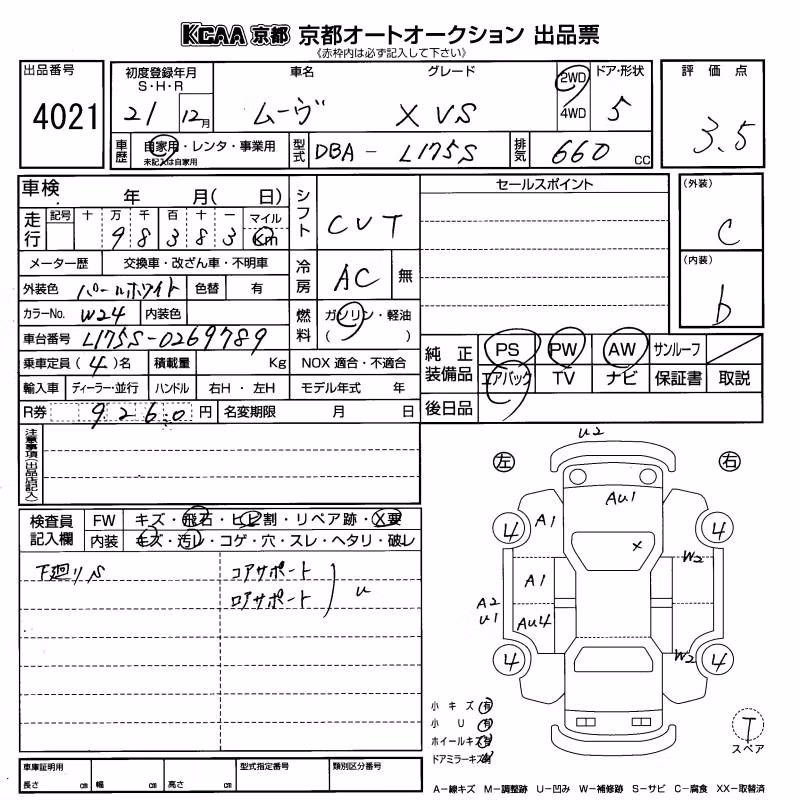 KCAA 京都 京都オートオークション 出品票
《赤枠内は必ず記入して下さい》
出品番号
4021
初度登録年月
S・H・R
21 12月
車名
ムーヴ
グレード
X VS
2WD
4WD
ドア・形状
5
評価点
3.5
車歴
自家用・レンタ・事業用
未記入は自家用
型式
DBA - L175S
排気
660 cc
車検
年 月( 日)
走行
記号 十 万 千 百 十 一 マイル
9 8 3 8 3 Km
メーター歴 交換車・改ざん車・不明車
外装色 パールホワイト 色替 有
カラーNo. W24 内装色
車台番号 L175S-0269789
乗車定員 (4)名 積載量 Kg NOX 適合・不適合
輸入車 ディーラー・並行 ハンドル 右H・左H モデル年式 年
R券 9260 円 名変期限 月 日
シフト
CVT
冷房
AC 無
燃料
ガソリン・軽油
( )
セールスポイント
(外装)
C
(内装)
b
純正装備品
PS PW AW サンルーフ
エアバッグ TV ナビ 保証書 取説
後日品
注意事項(出品店記入)
検査員記入欄
FW キズ・飛石・ヒビ割・リペア跡・X要
内装 キズ・汚レ・コゲ・穴・スレ・ヘタリ・破レ
下廻りS
コアサポート
ロアサポート
U
左
右
U2
AU1
A1
4
4
X
W2
A1
A2
U1
AU4
W2
4
4
小キズ 有
小U 有
ホイールキズ 有
ドアミラーキズ 有
T
スペア
車庫証明用
長さ cm 幅 cm 高さ cm
型式指定番号
類別区分番号
A-線キズ M-調整跡 U-凹み W-補修跡 S-サビ C-腐食 XX-取替済